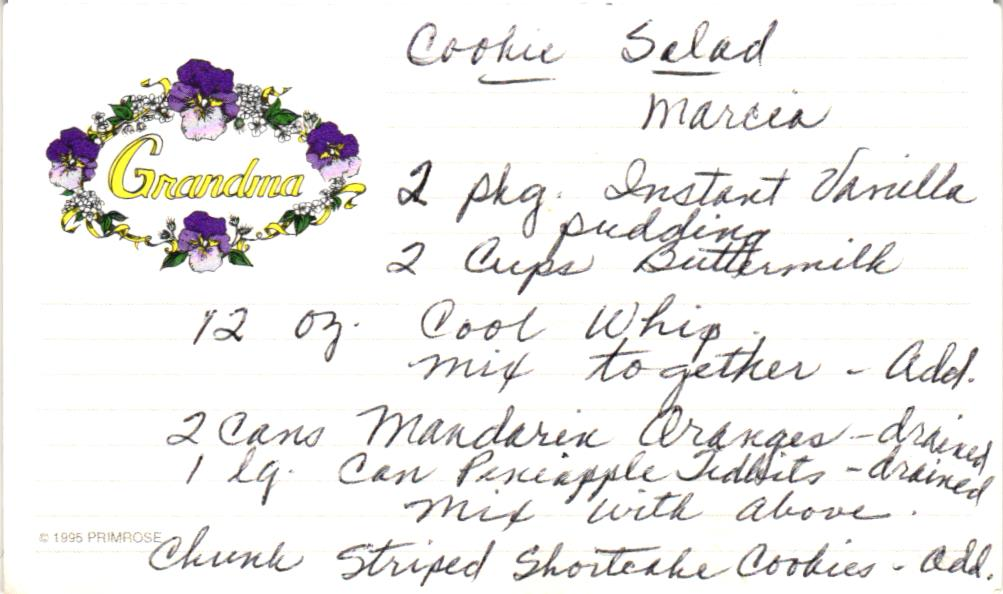 Cookie Salad
Marcia
Grandma
2 pkg. Instant Vanilla
pudding
2 Cups Buttermilk
12 oz. Cool Whip.
mix together - Add.
2 Cans Mandarin Oranges - drained
1 lg. Can Pineapple Tidbits - drained
Mix with above.
© 1995 PRIMROSE
Chunk Striped Shortcake Cookies - Add.